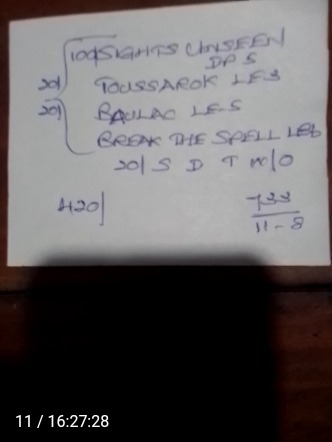 100/SIGHTS UNSEEN
DP S
20/ TOUSSAROK LES
20/ BAULAC LES
BREAK THE SPELL LES
20/ S D T w/o
420/
733
11-8
11 / 16:27:28